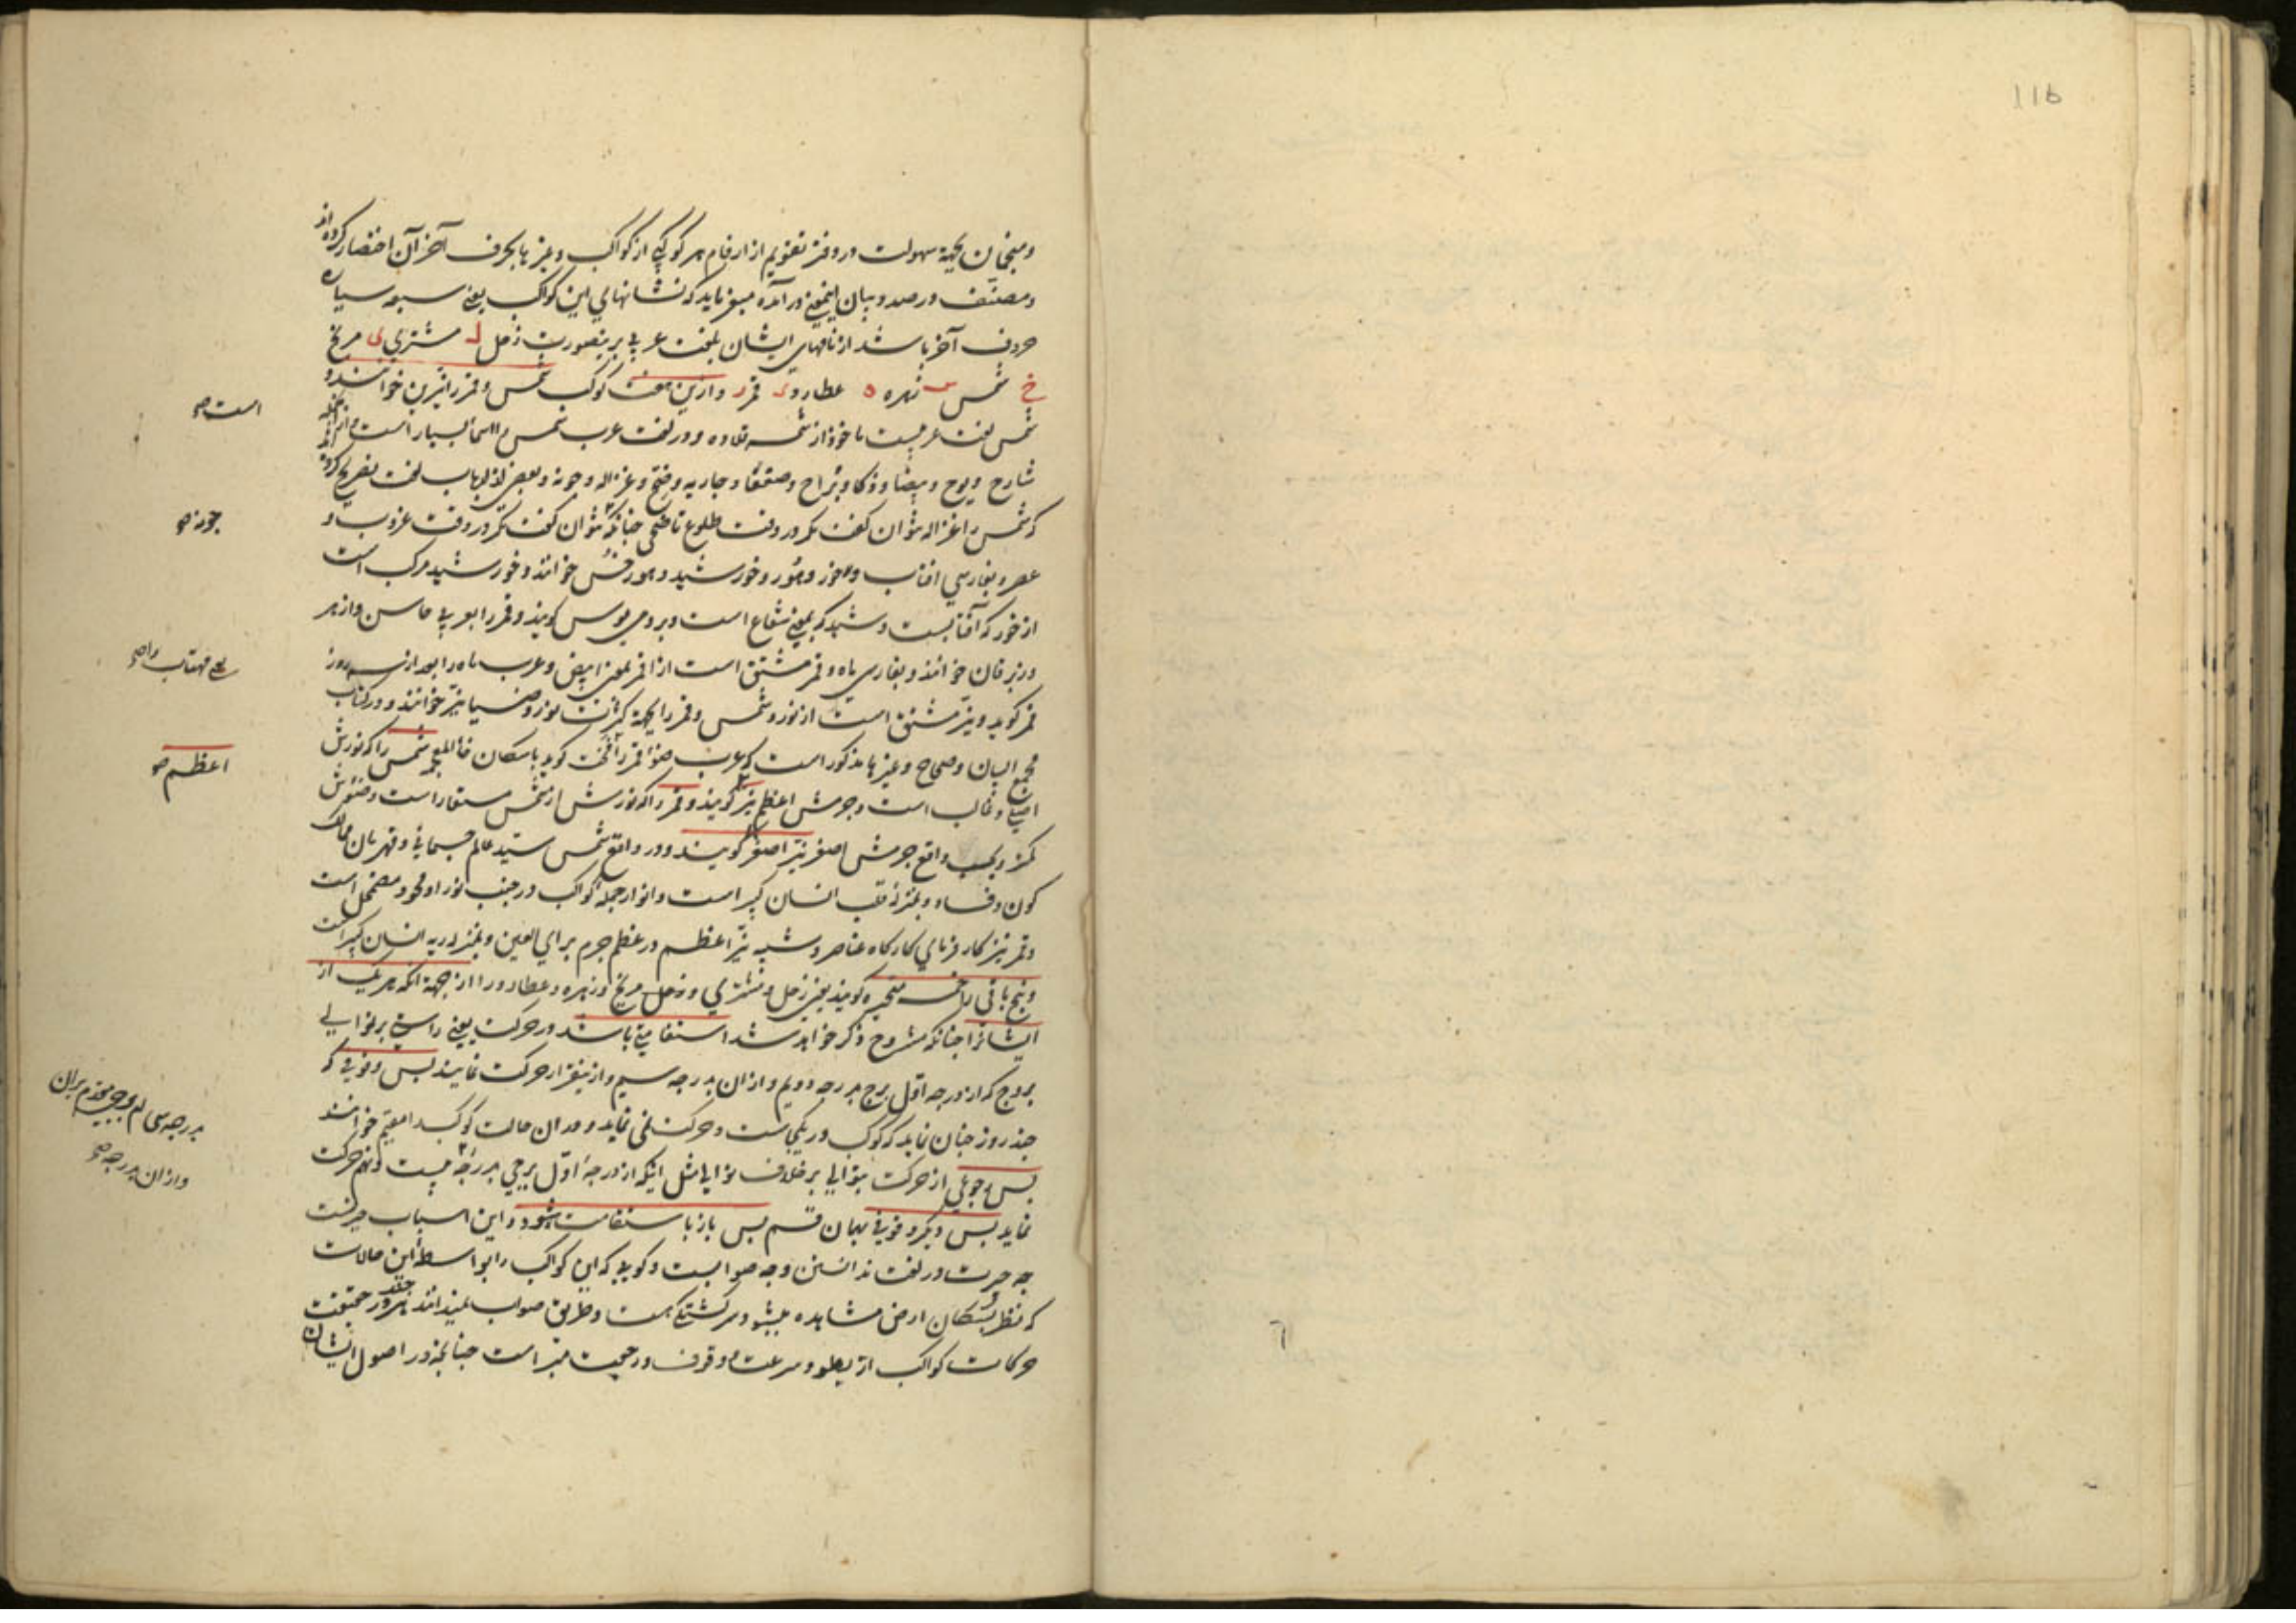 116
ومنجمان بجهة سهولت در دفتر تقویم از ارقام هر کوکبی از کواکب وغیرها بحرف آخر آن اختصار کرده اند
ومصنف در صدد بیان اینمعنی در آمده میفرماید که نشانهای این کواکب یعنی سبعه سیاره
حروف آخر باشد از نامهای ایشان بلغت عربی برینصورت زحل ل مشتری ی مریخ
خ شمس س زهره ه عطارد د قمر ر وازین هفت کوکب شمس وقمر را نیرین خوانند و
شمس لغت عربیست ماخوذ از شمسه قلاده و در لغت عرب شمس را اسما بسیار است از انجمله
شارح ویوح وبیضا وذکا وبراح وصقعا وجاریه وضح وغزاله وجونه وبعضی از ارباب لغت تصریح کرده اند
که شمس را غزاله نتوان گفت مگر در وقت طلوع تا ضحی چنانکه نتوان گفت مگر در وقت غروب و
عصر وبفارسی افتاب وخور وهور وخورشید وهور خوانند وخورشید مرکب است
از خور که آفتابست وشید که بمعنی شعاع است وبرومی یوس کویند وقمر را بعربی حاسن وازهر
وزبرقان خوانند وبفارسی ماه وقمر مشتق است از اقمر بمعنی ابیض وعرب ماه را بعد از سه روز
قمر کوید ونیر مشتق است از نور وشمس وقمر را بجهة کثرت نور وضیا نیر خوانند ودر کتاب
مجمع البیان وصحاح وغیرها مذکور است که عرب ضوا قمر را فخت کوید باسکان خا المعجمه شمس را که نورش
اصلی وغالب است وجرمش اعظم نیر کویند وقمر را که نورش از شمس مستفاد است وضوئش
کمتر وبحسب واقع جرمش اصغر نیر اصغر کویند ودر واقع شمس سید عالم جسمانی وقهرمان ممالک
کون وفساد وبمنزله قلب انسان کبیر است وانوار جمله کواکب در جنب نور او محو ومضمحل است
وقمر نیز کار فرمای کارکاه عناصر وشبیه نیر اعظم در عظم جرم برای العین وبمنزله ریه انسان کبیر است
وپنج باقی را خمسه متحیره کویند یعنی زحل ومشتری ومریخ وزهره وعطارد را از جهة آنکه هر یک از
ایشانرا چنانکه مشروح ذکر خواهد شد استقامتی باشد در حرکت یعنی راستی بر توالی
بروج که از درجه اول برج بدرجه دویم وازان بدرجه سیم وازینقرار حرکت نمایند پس وقوفی که
چند روز چنان نماید که کوکب در یکجاست وحرکت نمی نماید ودران حالت کوکب را مقیم خوانند
پس رجوعی از حرکت بتوالی بر خلاف توالی مثل اینکه از درجه اول برجی بدرجه بیست ونهم حرکت
نماید پس دیگر وقوفی بهمان قسم پس باز باستقامت شود واین اسباب حیرتست
چه حیرت در لغت ندانستن وجه صوابست وکویا که این کواکب را بواسطه این حالات
که بنظر سکان ارض مشاهده میشود سرکشتگی هست وطریق صواب نمیدانند هرچند در حقیقت
حرکات کواکب از بطو وسرعت ووقوف ورجعت مبرّا است چنانچه در اصول ایشان
است صح
جونه صح
اعظم صح
وازان بدرجه صح